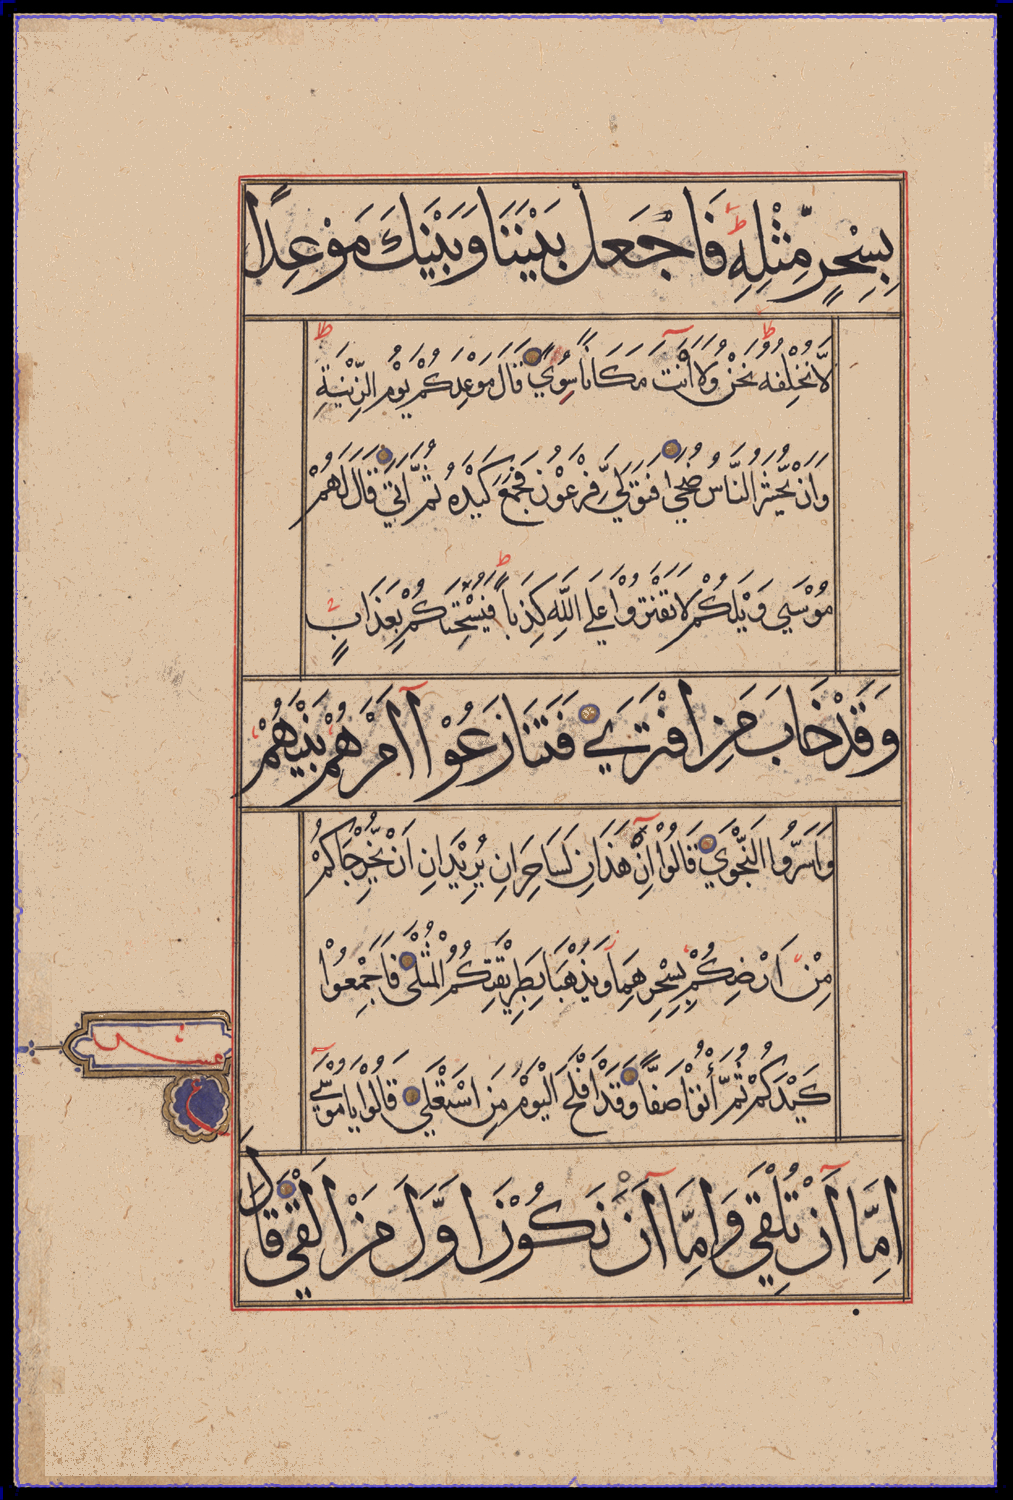 بِسِحْرٍ مِّثْلِهِ فَاجْعَل بَيْنَنَا وَبَيْنَكَ مَوْعِدًا
لَّا نُخْلِفُهُ نَحْنُ وَلَا أَنتَ مَكَانًا سُوًى قَالَ مَوْعِدُكُمْ يَوْمُ الزِّينَةِ
وَاَنْ يُّحْشَرَ النَّاسُ ضُحًى فَتَوَلَّى فِرْعَوْنُ فَجَمَعَ كَيْدَهُ ثُمَّ اَتَى قَالَ لَهُمْ
مُوْسَى وَيْلَكُمْ لَا تَفْتَرُوْا عَلَى اللَّهِ كَذِبًا فَيُسْحِتَكُمْ بِعَذَابٍ
وَقَدْ خَابَ مَنِ افْتَرَى فَتَنَازَعُوْا اَمْرَهُمْ بَيْنَهُمْ
وَاَسَرُّوا النَّجْوَى قَالُوْا اِنْ هَذَانِ لَسَاحِرَانِ يُرِيْدَانِ اَنْ يُّخْرِجَاكُمْ
مِنْ اَرْضِكُمْ بِسِحْرِهِمَا وَيَذْهَبَا بِطَرِيْقَتِكُمُ الْمُثْلَى فَاَجْمِعُوْا
كَيْدَكُمْ ثُمَّ أْتُوْا صَفًّا وَقَدْ اَفْلَحَ الْيَوْمَ مَنِ اسْتَعْلَى قَالُوْا يَا مُوْسَى
اِمَّا اَنْ تُلْقِيَ وَاِمَّا اَنْ نَكُوْنَ اَوَّلَ مَنْ اَلْقَى قَالَ
عشر